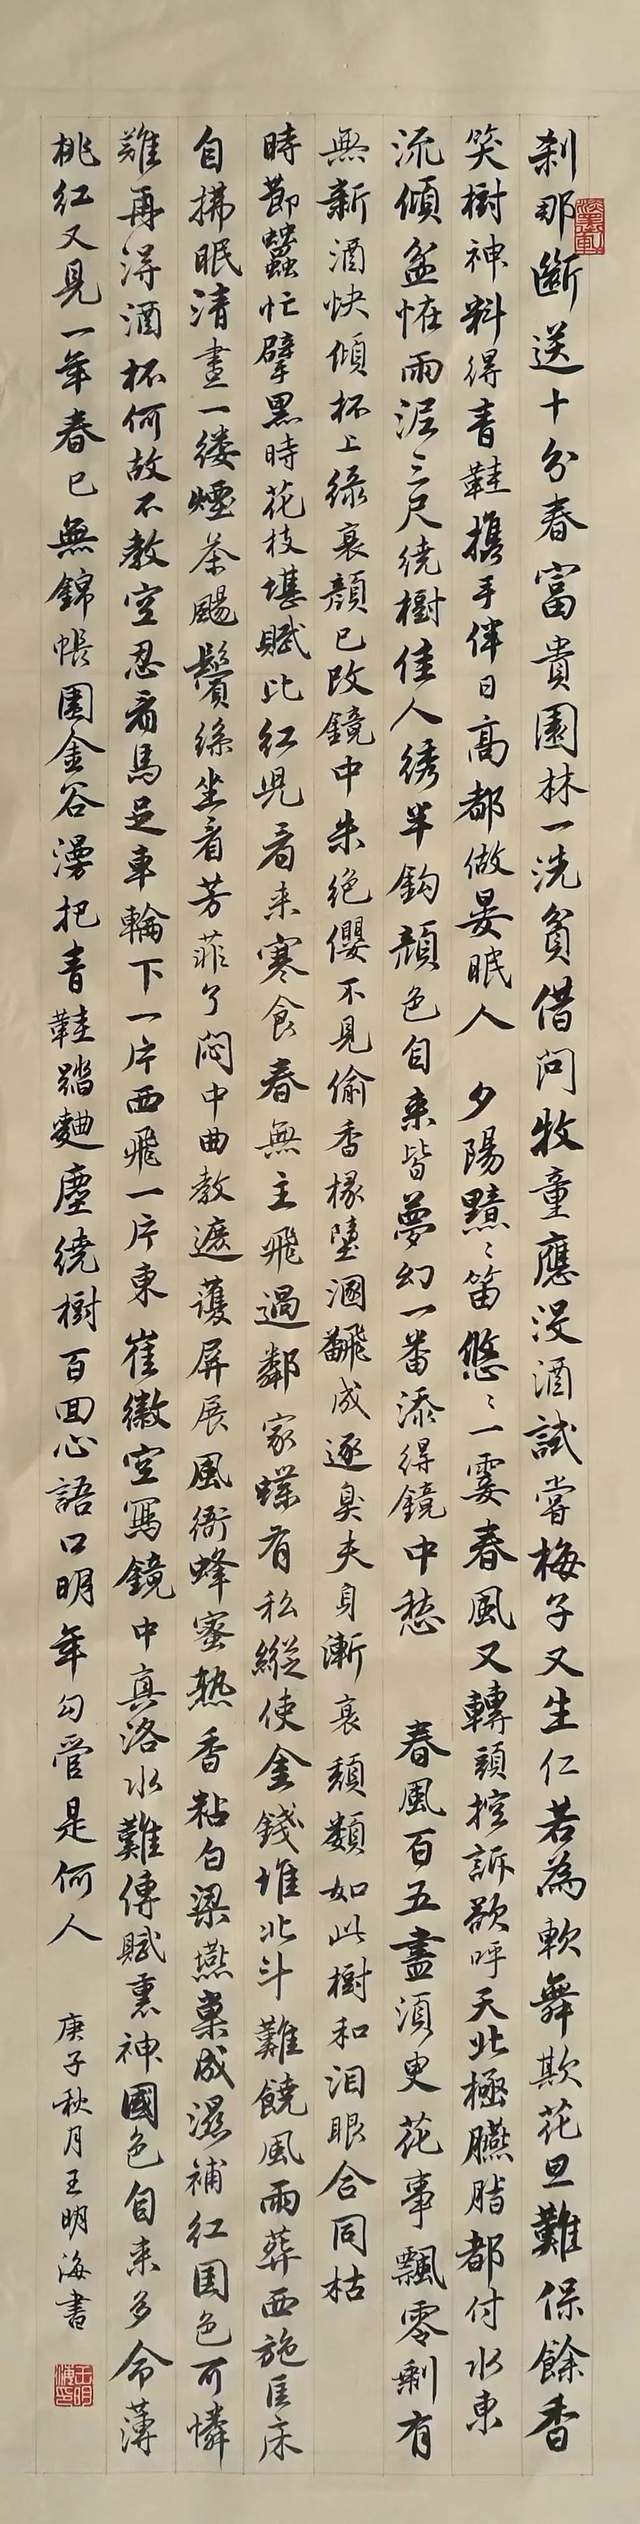 刹那斷送十分春富貴園林一洗貧借問牧童應没酒試嘗梅子又生仁若為軟舞欺花旦難保餘香
笑樹神料得青鞋携手伴日高都做晏眠人 夕陽黯〻笛悠〻一霎春風又轉頭控訴欲呼天北極臙脂都付水東
流傾盆怪雨泥三尺繞樹佳人綉半鈎顔色自来皆夢幻一番添得鏡中愁 春風百五盡須臾花事飄零剩有
無新酒快傾杯上緑衰顔已改鏡中朱絶纓不見偷香椽墮溷飜成逐臭夫身漸衰頹類如此樹和淚眼合同枯
時節蠶忙擘黑時花枝堪賦比紅兒看来寒食春無主飛過鄰家蝶有私縱使金錢堆北斗難饒風雨葬西施匡床
自拂眠清晝一縷煙茶颺鬢絲坐看芳菲了悶中曲教遮護屏展風衙蜂蜜熟香粘白梁燕巢成濕補紅国色可憐
難再得酒杯何故不教空忍看馬足車輪下一片西飛一片東崔徽空寫鏡中真洛水難傳賦裏神國色自来多命薄
桃紅又見一年春已無錦帳圍金谷漫把青鞋踏麯塵繞樹百回心語口明年勾管是何人 庚子秋月王明海書